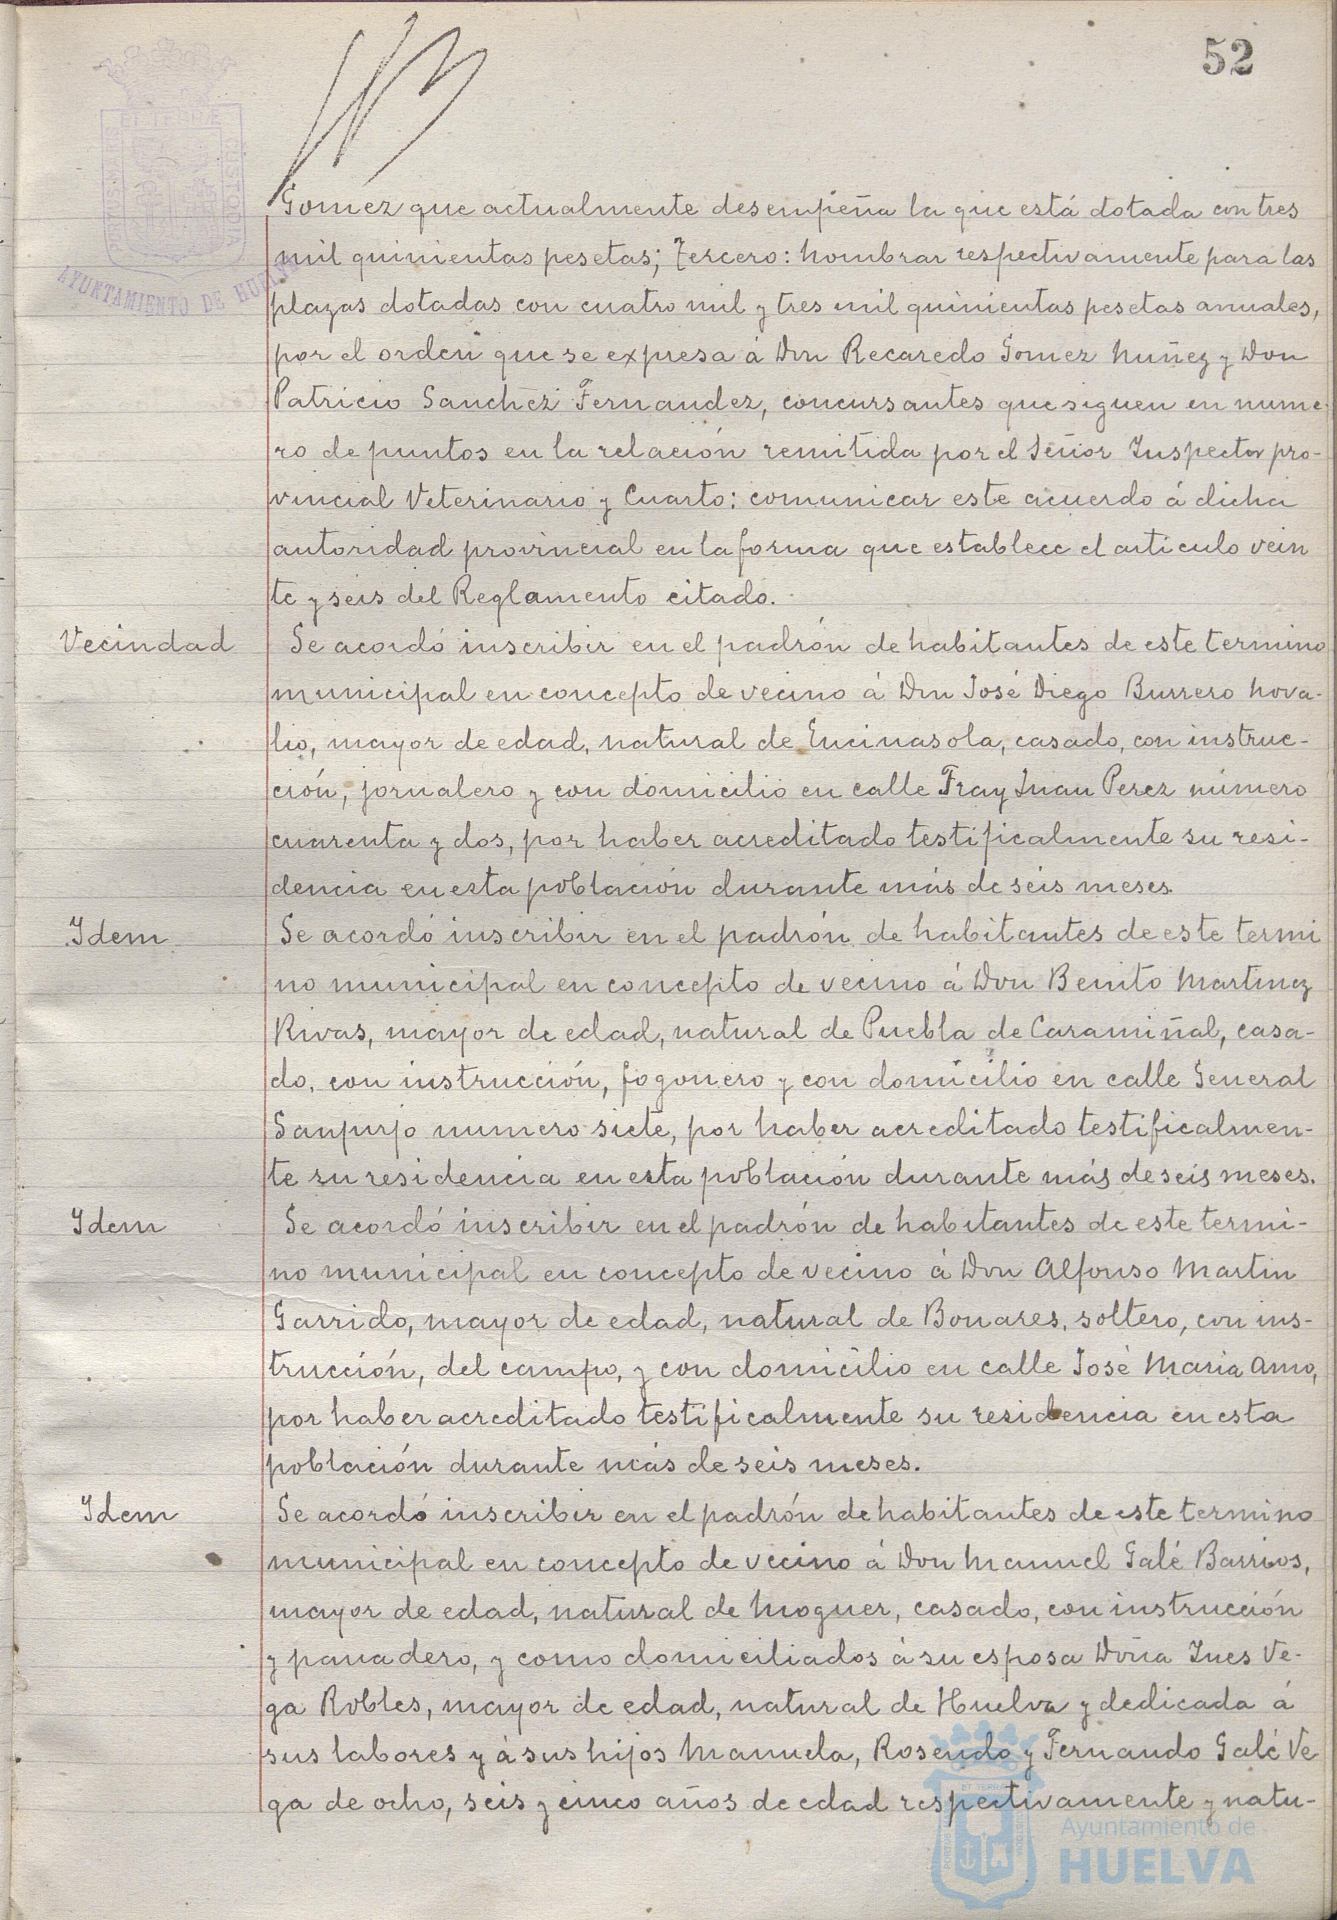 52
PORTUS MARIS ET TERRÆ CUSTODIA
AYUNTAMIENTO DE HUELVA
Gomez que actualmente desempeña la que está dotada con tres
mil quinientas pesetas; Tercero: Nombrar respectivamente para las
plazas dotadas con cuatro mil y tres mil quinientas pesetas anuales,
por el orden que se expresa á Don Recaredo Gomez Nuñez y Don
Patricio Sanchez Fernandez, concursantes que siguen en nume-
ro de puntos en la relación remitida por el Señor Inspector pro-
vincial Veterinario y Cuarto: comunicar este acuerdo á dicha
autoridad provincial en la forma que establece el articulo vein
te y seis del Reglamento citado.
Vecindad Se acordó inscribir en el padrón de habitantes de este termino
municipal en concepto de vecino á Don José Diego Burrero Nova-
lio, mayor de edad, natural de Encinasola, casado, con instruc-
ción, jornalero y con domicilio en calle Fray Juan Perez número
cuarenta y dos, por haber acreditado testificalmente su resi-
dencia en esta población durante más de seis meses.
Idem Se acordó inscribir en el padrón de habitantes de este termi
no municipal en concepto de vecino á Don Benito Martinez
Rivas, mayor de edad, natural de Puebla de Caramiñal, casa-
do, con instrucción, fogonero y con domicilio en calle General
Sanjurjo numero siete, por haber acreditado testificalmen-
te su residencia en esta población durante más de seis meses.
Idem Se acordó inscribir en el padrón de habitantes de este termi-
no municipal en concepto de vecino á Don Alfonso Martin
Garrido, mayor de edad, natural de Bonares, soltero, con ins-
trucción, del campo, y con domicilio en calle José Maria Amo,
por haber acreditado testificalmente su residencia en esta
población durante más de seis meses.
Idem Se acordó inscribir en el padrón de habitantes de este termino
municipal en concepto de vecino á Don Manuel Galé Barrios,
mayor de edad, natural de Moguer, casado, con instrucción
y panadero, y como domiciliados á su esposa Doña Ines Ve-
ga Robles, mayor de edad, natural de Huelva y dedicada á
sus labores y á sus hijos Manuela, Rosendo y Fernando Galé Ve
ga de ocho, seis y cinco años de edad respectivamente y natu-
Ayuntamiento de
HUELVA